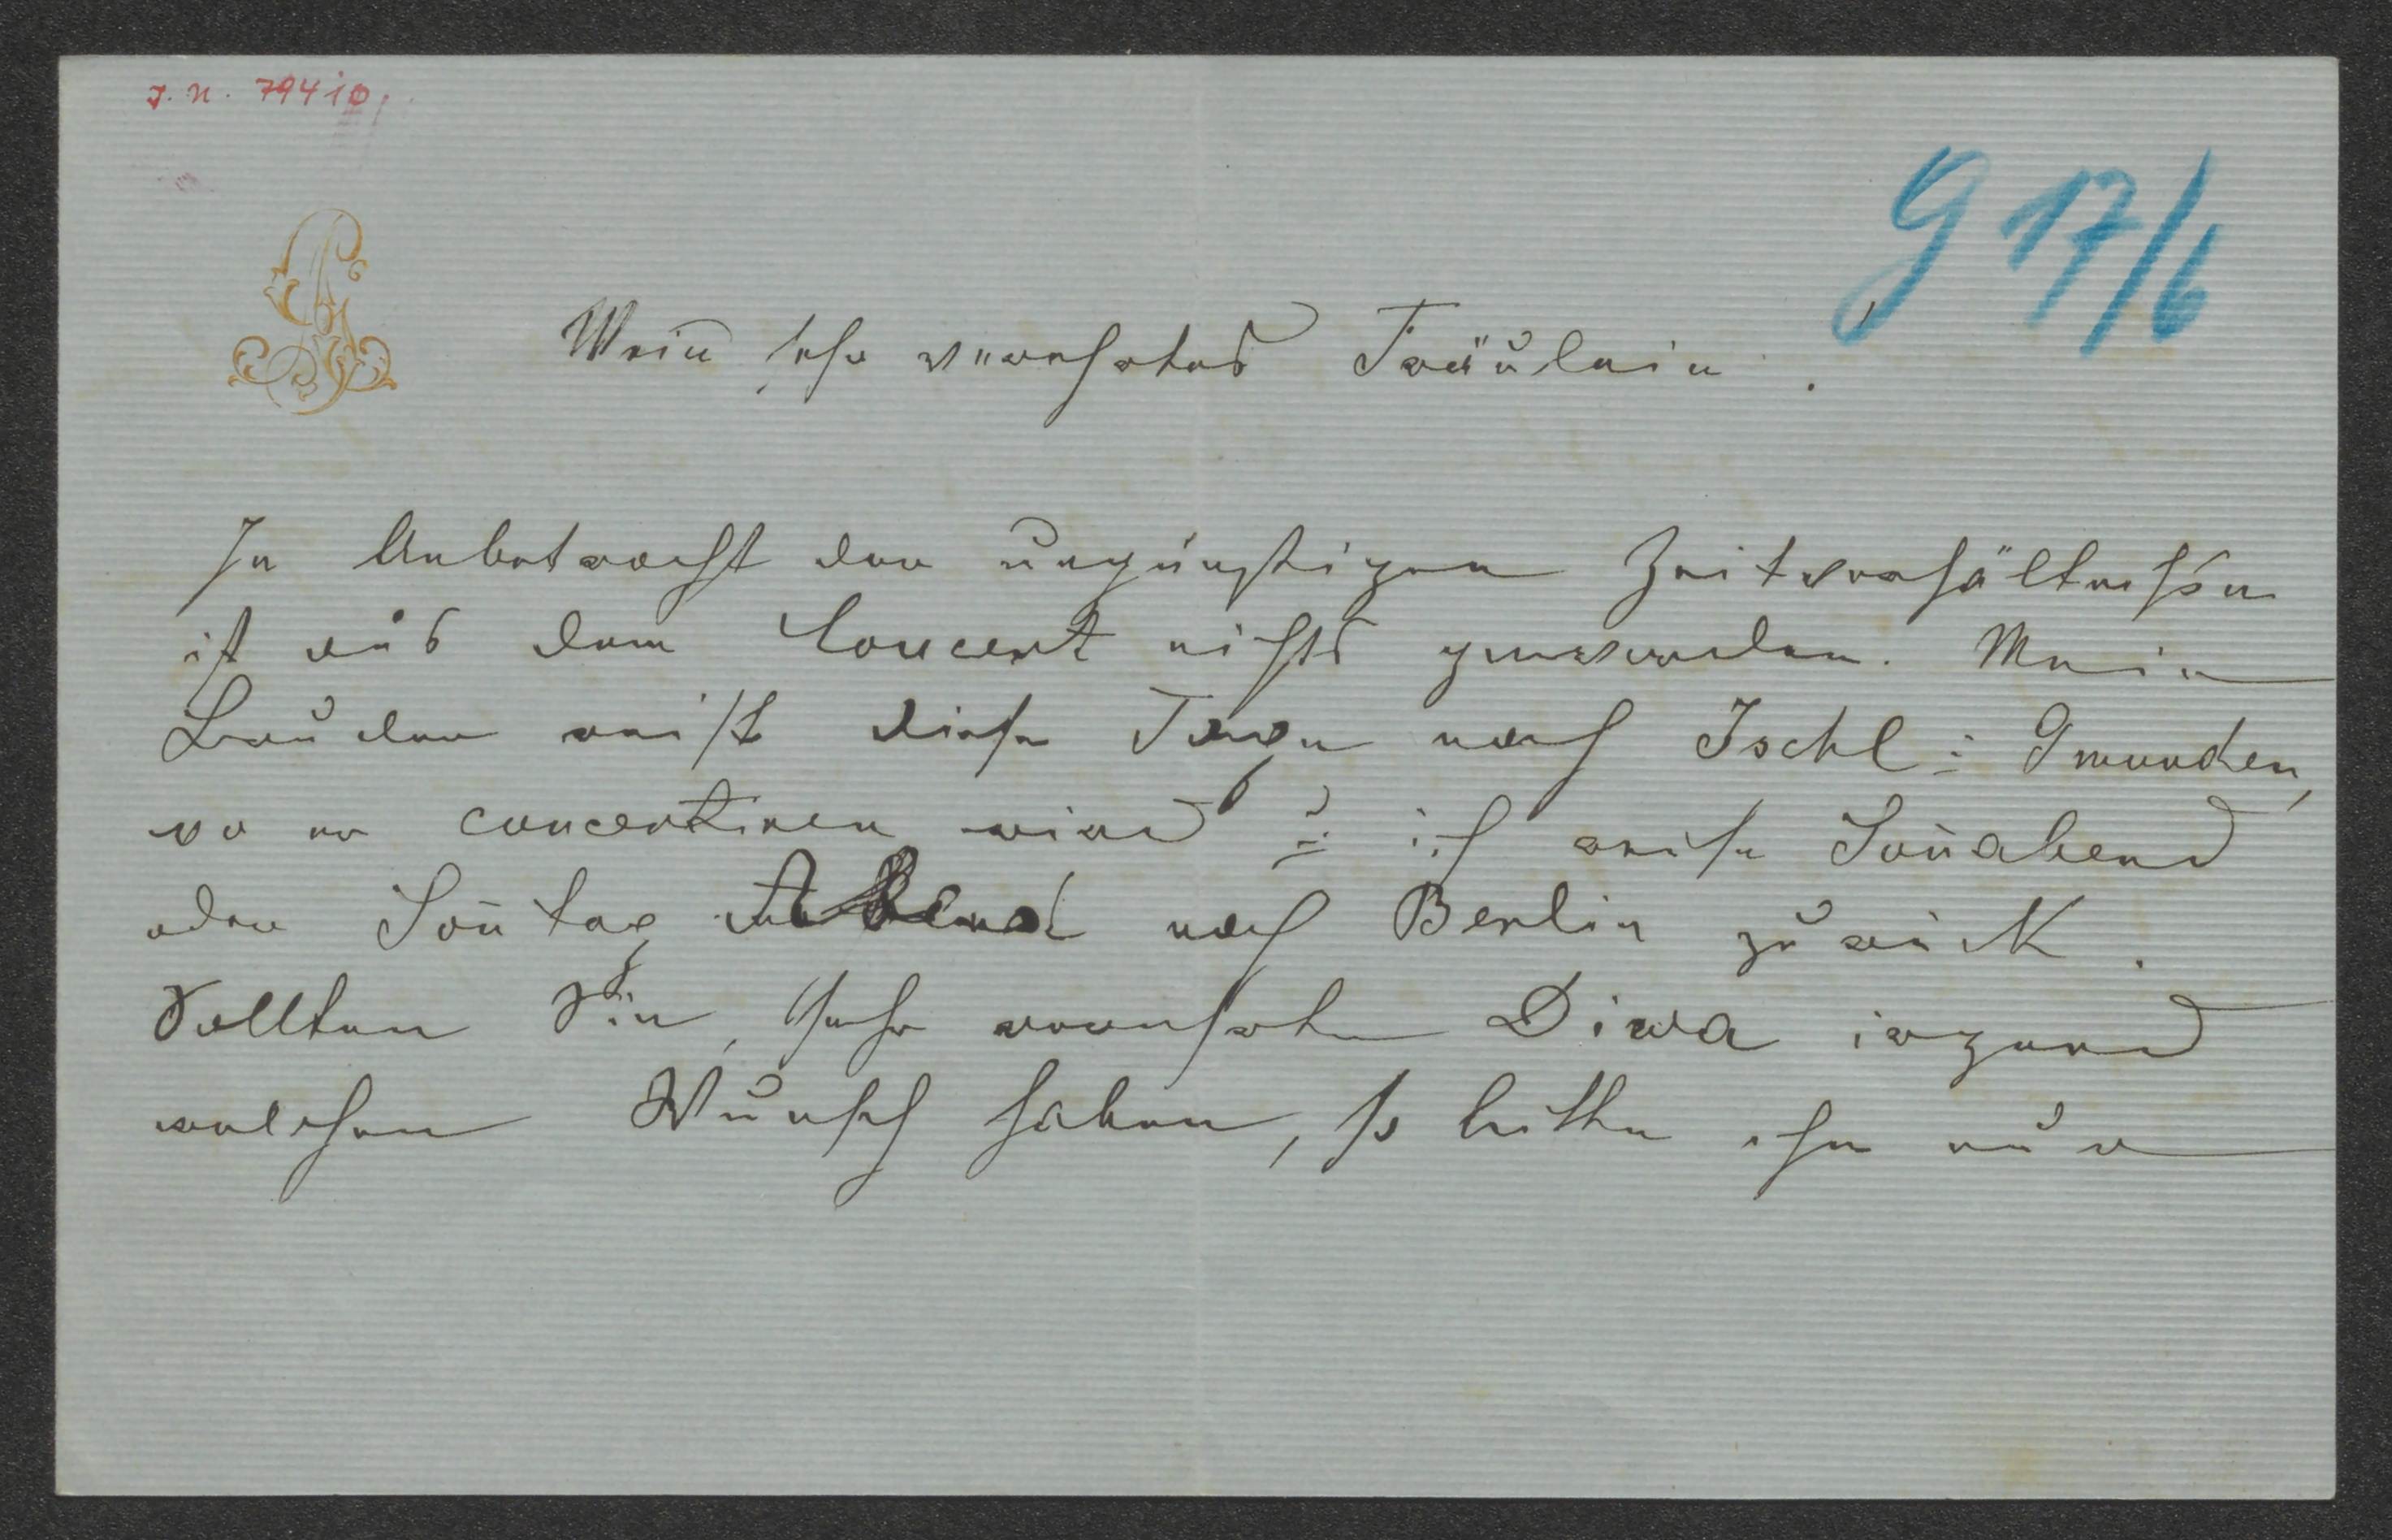 J. N. 79410
G 17/6
Mein sehr verehrtes Fräulein.
In Anbetracht der ungünstigen Zeitverhältnisse
ist aus dem Concert nichts geworden. Mein
Bruder reist diese Tage nach Ischl u Gmunden,
wo er concertiren wird u ich reise Sonabend
oder Sontag Abend nach Berlin zurück.
Sollten Sie, sehr verehrte Diva irgend
welchen Wunsch haben, so bitte ihn nur